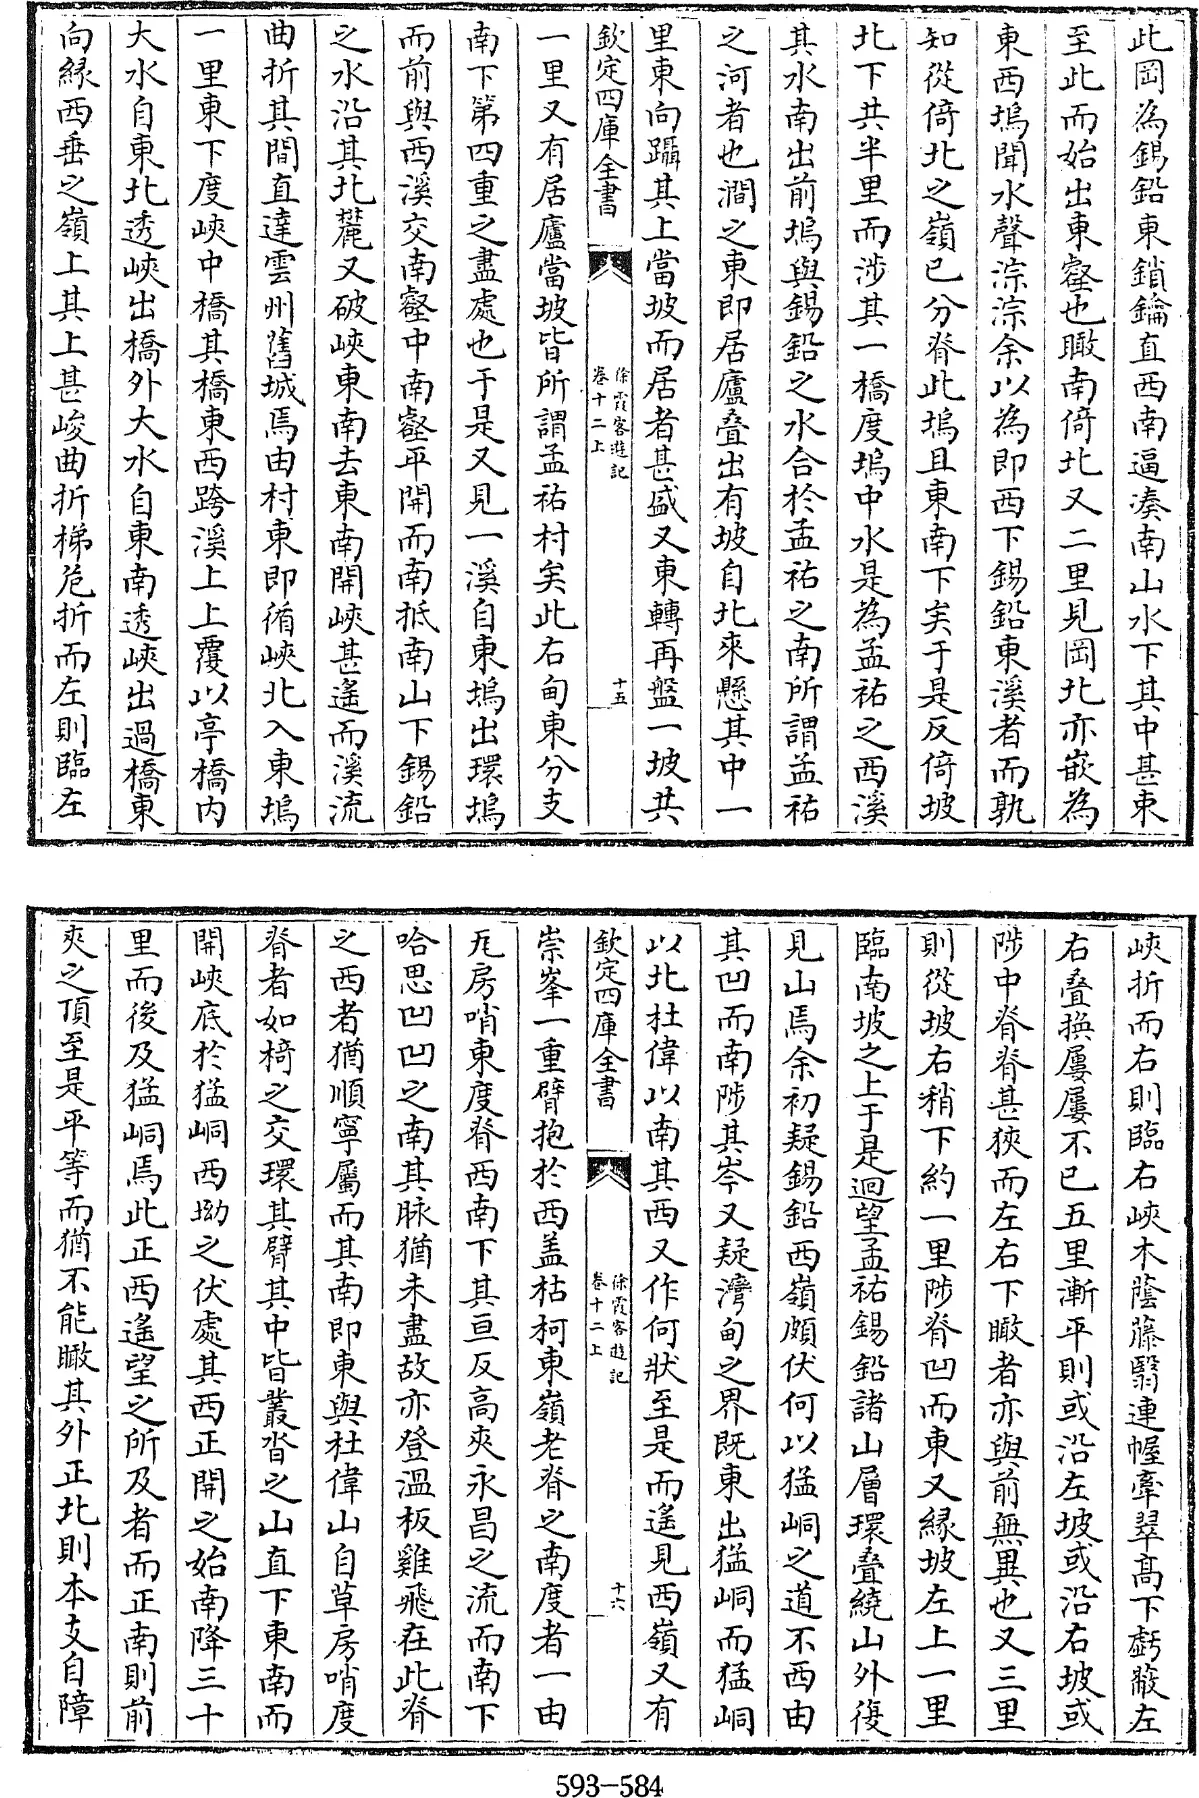 此岡為錫鉛東鎖鑰直西南逼湊南山水下其中甚東
至此而始出東壑也瞰南倚北又二里見岡北亦嵌為
東西塢聞水聲淙淙余以為即西下錫鉛東溪者而孰
知從倚北之嶺已分脊此塢且東南下矣于是反倚坡
北下共半里而涉其一橋度塢中水是為孟祐之西溪
其水南出前塢與錫鉛之水合於孟祐之南所謂孟祐
之河者也澗之東即居廬叠出有坡自北來懸其中一
里東向躡其上當坡而居者甚盛又東轉再盤一坡共
欽定四庫全書
徐霞客遊記
卷十二上
十五
一里又有居廬當坡皆所謂孟祐村矣此右甸東分支
南下第四重之盡處也于是又見一溪自東塢出環塢
而前與西溪交南壑中南壑平開而南抵南山下錫鉛
之水沿其北麓又破峽東南去東南開峽甚遙而溪流
曲折其間直達雲州舊城焉由村東即循峽北入東塢
一里東下度峽中橋其橋東西跨溪上上覆以亭橋内
大水自東北透峽出橋外大水自東南透峽出過橋東
向緣西垂之嶺上其上甚峻曲折梯危折而左則臨左
峽折而右則臨右峽木蔭藤翳連幄牽翠高下虧蔽左
右叠換屢屢不已五里漸平則或沿左坡或沿右坡或
陟中脊脊甚狹而左右下瞰者亦與前無異也又三里
則從坡右稍下約一里陟脊凹而東又緣坡左上一里
臨南坡之上于是迴望孟祐錫鉛諸山層環叠繞山外復
見山焉余初疑錫鉛西嶺頗伏何以猛峒之道不西由
其凹而南陟其岑又疑灣甸之界既東出猛峒而猛峒
以北杜偉以南其西又作何狀至是而遙見西嶺又有
欽定四庫全書
徐霞客遊記
卷十二上
十六
崇峯一重臂抱於西盖枯柯東嶺老脊之南度者一由
瓦房哨東度脊西南下其亘反高夾永昌之流而南下
哈思凹凹之南其脉猶未盡故亦登溫板雞飛在此脊
之西者猶順寧屬而其南即東與杜偉山自草房哨度
脊者如椅之交環其臂其中皆叢沓之山直下東南而
開峽底於猛峒西坳之伏處其西正開之始南降三十
里而後及猛峒焉此正西遙望之所及者而正南則前
夾之頂至是平等而猶不能瞰其外正北則本支自障
593-584